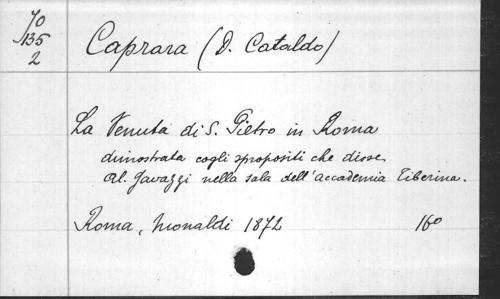 70
135
2
Caprara (D. Cataldo)
La Venuta di S. Pietro in Roma
dimostrata cogli spropositi che disse
Al. Gavazzi nella sala dell'accademia Tiberina.
Roma, Monaldi 1872 16°